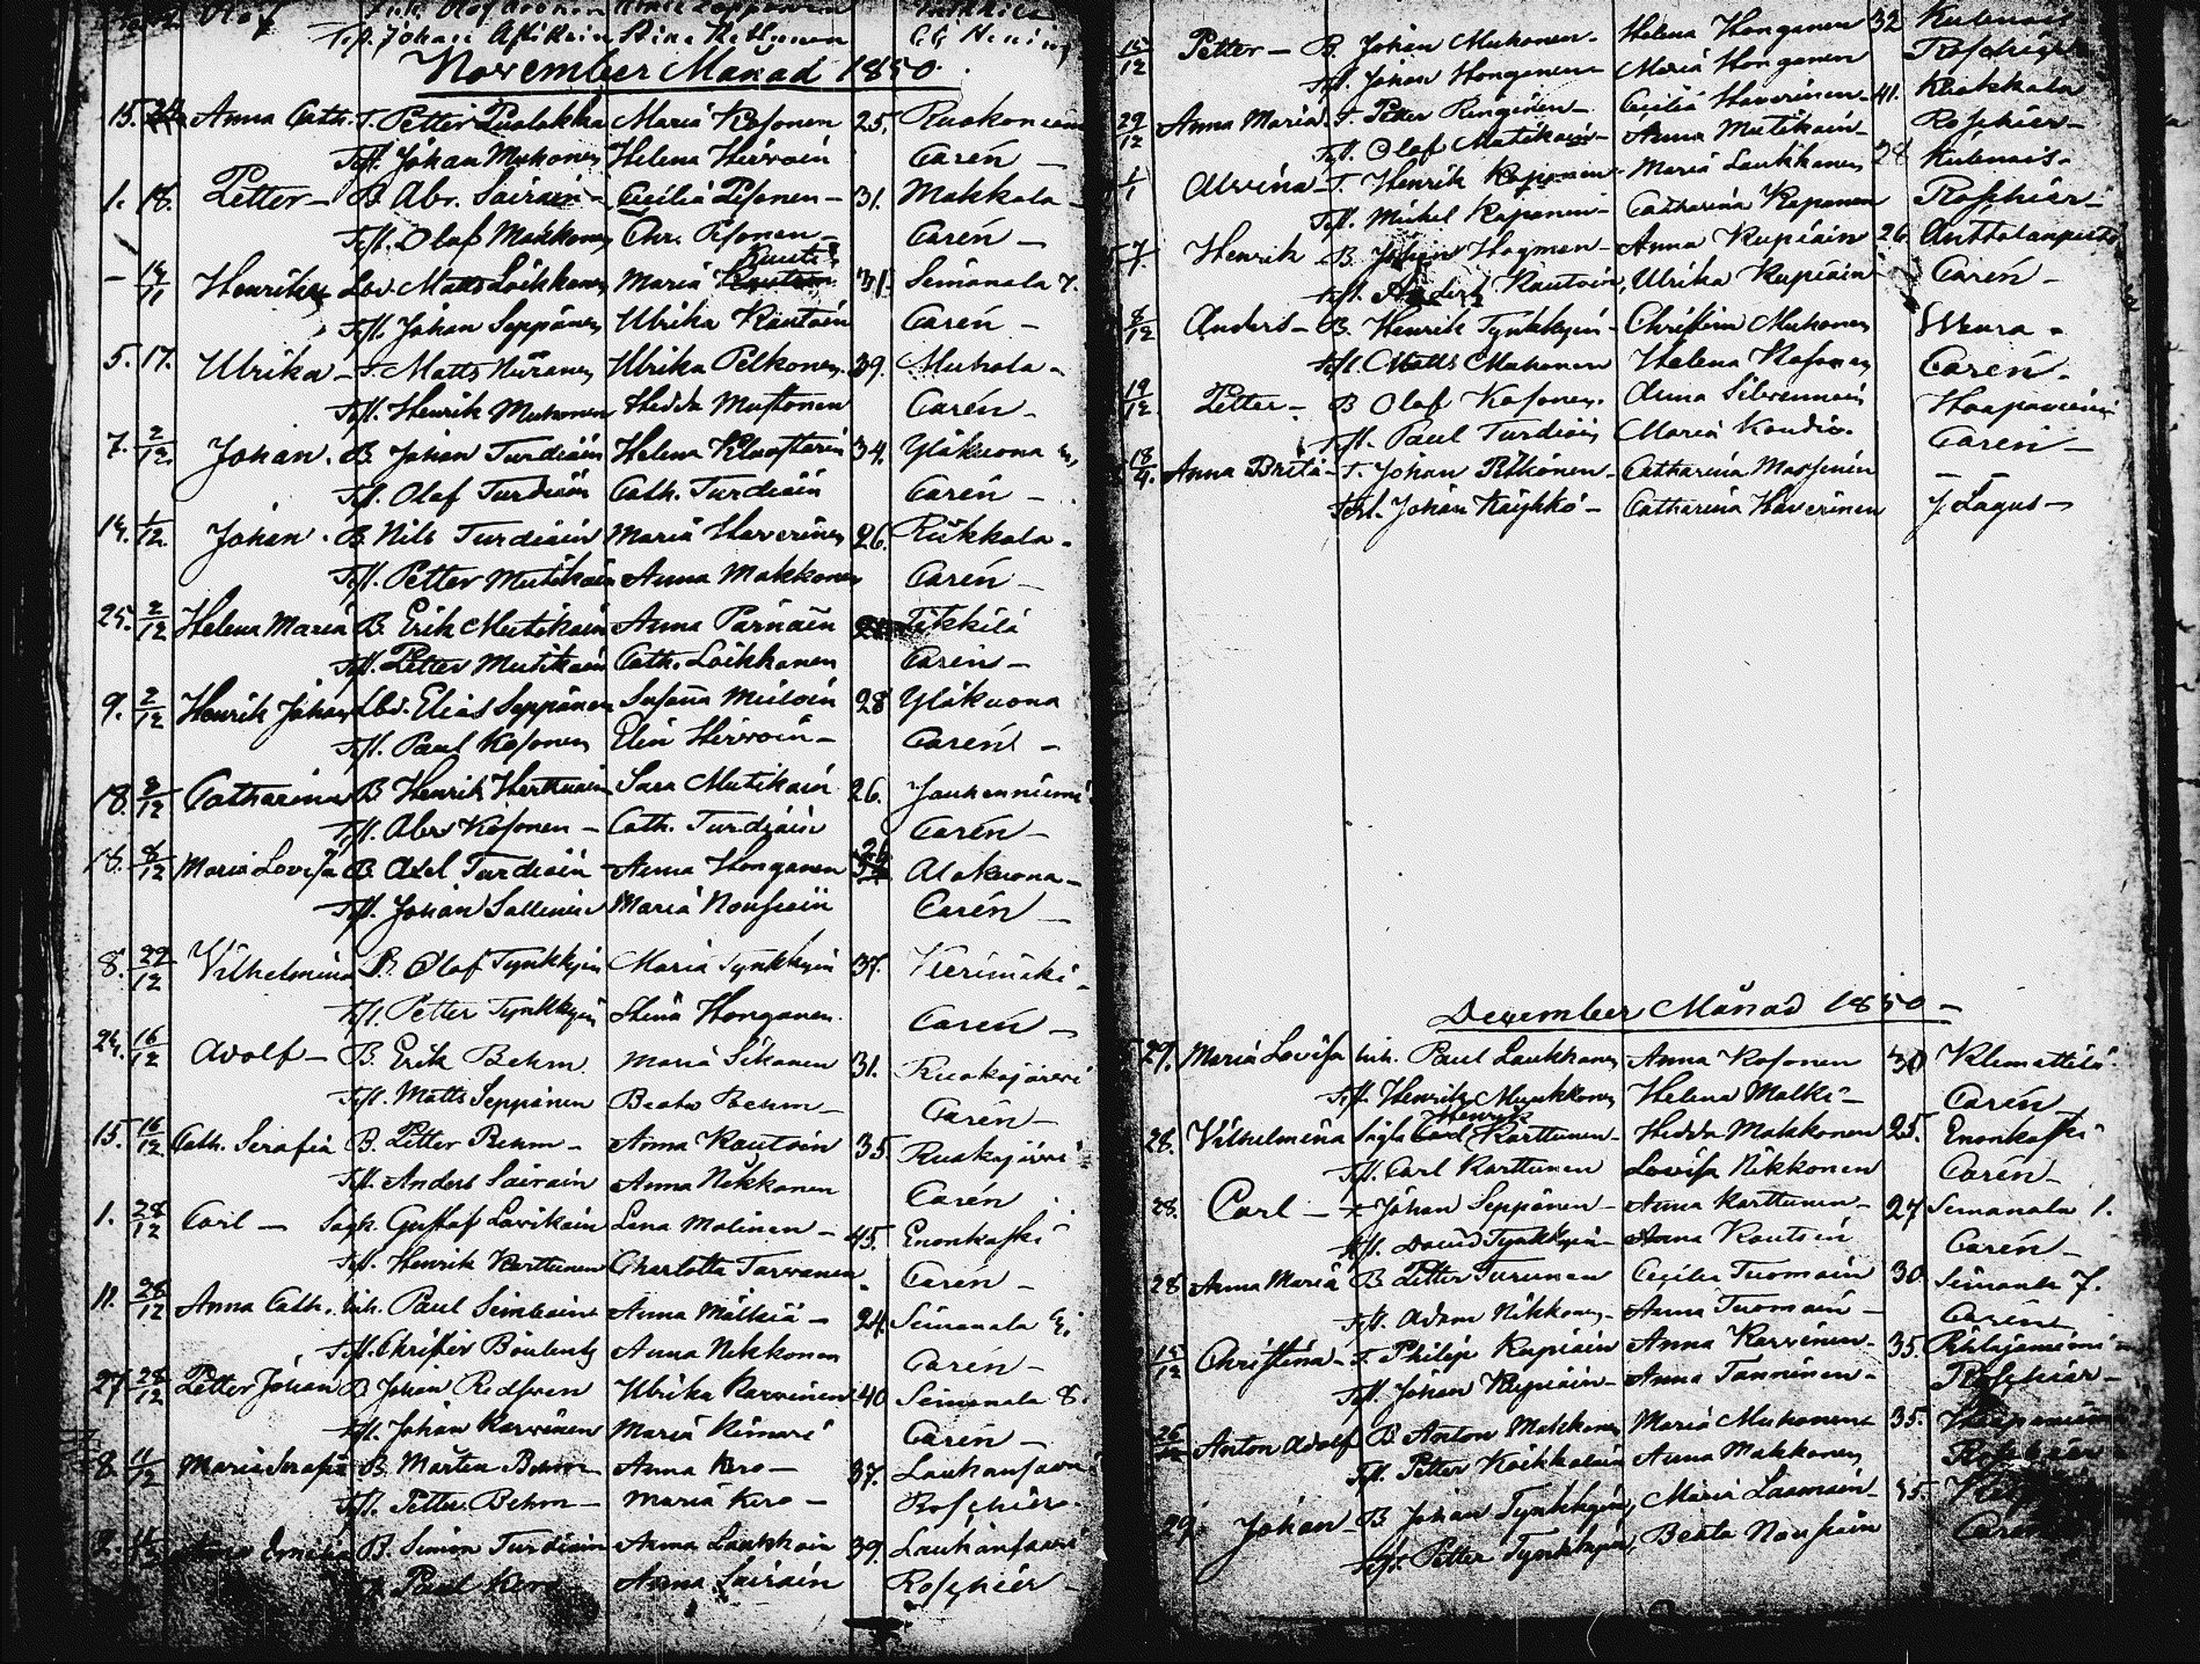 Olof
Test. Johan Stina
November Månad 1850.
15. Anna Cath. T. Petter Puolakka Maria Kosonen 25. Ruokoniemi
Test. Johan Muhonen Helena Hirvoin Carén –
1. 18. Petter – B. Abr. Sairain – Cecilia Pesonen – 31. Makkola –
Test. Olof Makkonen Chr. Pesonen – Carén –
– 14/11 Henrika Lbd. Matts Loikkanen Maria Rauti 31. Simanala 7.
Test. Johan Seppänen Ulrika Rautoin Carén –
5. 17. Ulrika – T. Matts Ulrika Pelkonen 39. Muhola –
Test. Henrik Muhonen Hedda Mustonen Carén –
7. 2/12 Johan. B. Johan Turdiain Helena Kluostarin 34. Yläkuona
Test. Olof Turdiain Cath. Turdiain Carén –
14. 1/12 Johan. B. Nils Turdiain Maria Haverinen 26. Rikkola –
Test. Petter Mutikain Anna Makkonen Carén –
25. 2/12 Helena Maria B. Erik Mutikain Anna Pärnäin
Test. Petter Mutikain Cath. Loikkanen Carén –
9. 2/12 Henrik Johan Lbd. Elias Seppänen Susanna 28 Yläkuona
Test. Paul Kosonen Elin Hirvoin – Carén –
18. 8/12 Catharina B. Henrik Herttuain Sara Mutikain 26. Jouhenniemi
Test. Abr. Kosonen – Cath. Turdiain Carén –
18. 8/12 Maria Lovisa B. Axel Turdiain – Anna Honganen Alakuona –
Test. Johan Sallinen Maria Nousiain Carén –
8. 29/12 Vilhelmina B. Olof Tynkkyin Maria Tynkkyin 37. Vierimäki –
Test. Petter Tynkkyin Stina Honganen. Carén –
24. 16/12 Adolf – B. Erik Behm Maria Sikanen 31. Ruokojärvi
Test. Matts Seppänen Beata Behm – Carén –
15. 16/12 Cath. Serafia B. Petter Behm – Anna Rautoin 35. Ruokojärvi
Test. Anders Sairain Anna Nikkonen Carén
1. 28/12 Carl – Gustaf Lavikain Lena Molinen – 45. Enonkoski
Test. Henrik Karttunen Charlotta Tarvanen Carén –
11. 28/12 Anna Cath. Inh. Paul Anna Mälkiä – 24. Simanala
Test. Anna Nikkonen Carén –
27. 28/12 Petter Johan B. Johan Redsven Ulrika Karvinen 40 Simanala 8.
Test. Johan Karvinen Maria Carén –
8. 11/12 Maria Serafia B. Mårten Behm Anna Kero – 37. Laukansaari
Test. Petter Behm – Maria Kero – Roschier.
2. Emelia B. Simon Turdiain Anna Laukkain 39. Laukansaari
Paul Kero Anna Sairain Roschier –
15/12 Petter – B. Johan Muhonen – Helena Honganen 32
Test. Johan Honganen – Maria Honganen Roschier
29/12 Anna Maria. T. Petter Ringinen – Cecilia Haverinen – 41.
Test. Olof Mutikain – Anna Mutikain – Roschier –
1/1 Alvina – T. Henrik Kaponen – Maria Laukkanen 28
Test. Michel Kaponen – Catharina Kaponen Roschier –
7. Henrik B. Johan Hagman – Anna Kupiain 26
Test. Anders Rautoin, Ulrika Kupiain Carén –
8/12 Anders – B. Henrik Tynkkyin – Christina Muhonen
Test. Matts Muhonen Helena Kosonen Carén –
19/12 Petter – B Olof Kosonen. Anna Silvennoin Haapaniemi
Test. Paul Turdiain Maria Carén –
18/9. Anna Brita – T. Johan – Catharina Massinen – –
Test. Johan Käyhkö – Catharina Haverinen J. Lagus –
December Månad 1850 –
29. Maria Lovisa Inh. Paul Laukkanen Anna Kosonen 30 Klemettilä
Test. Henrik Munkkonen Helena Malki – Carén
Henrik
28. Vilhelmina Karttunen – Hedda Makkonen 25. Enonkoski
Test. Carl Karttunen Lovisa Nikkonen Carén –
28. Carl – Johan Seppänen – Anna Karttunen – 27 Simanala 1.
Test. David Tynkkyin – Anna Rautoin Carén –
28 Anna Maria B Petter Turunen Cecilia Tuomain 30 Simanala 7.
Test. Adam Nikkonen – Anna Tuomain – Carén
15/12 Christina – T. Philip Kupiain Anna Karvinen – 35.
Test. Johan Kupiain – Anna Tanninen – Roschier –
Anton Adolf B Anton Makkonen Maria Muhonen 35. Haapaniemi
Test. Petter Anna Makkonen Roschier
29 Johan – B Johan Tynkkyin, Maria Laamain – 35.
Test. Petter Tynkkyin, Beata Nousiain Carén